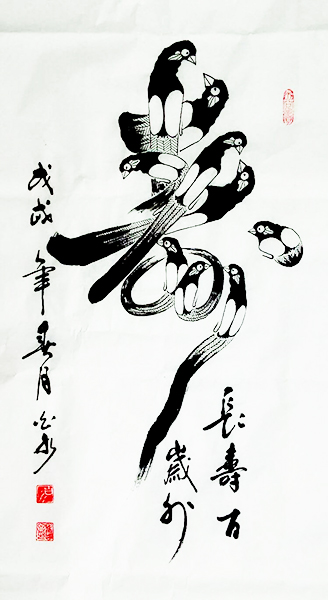 寿
長壽百
歲外
戊戌年春月